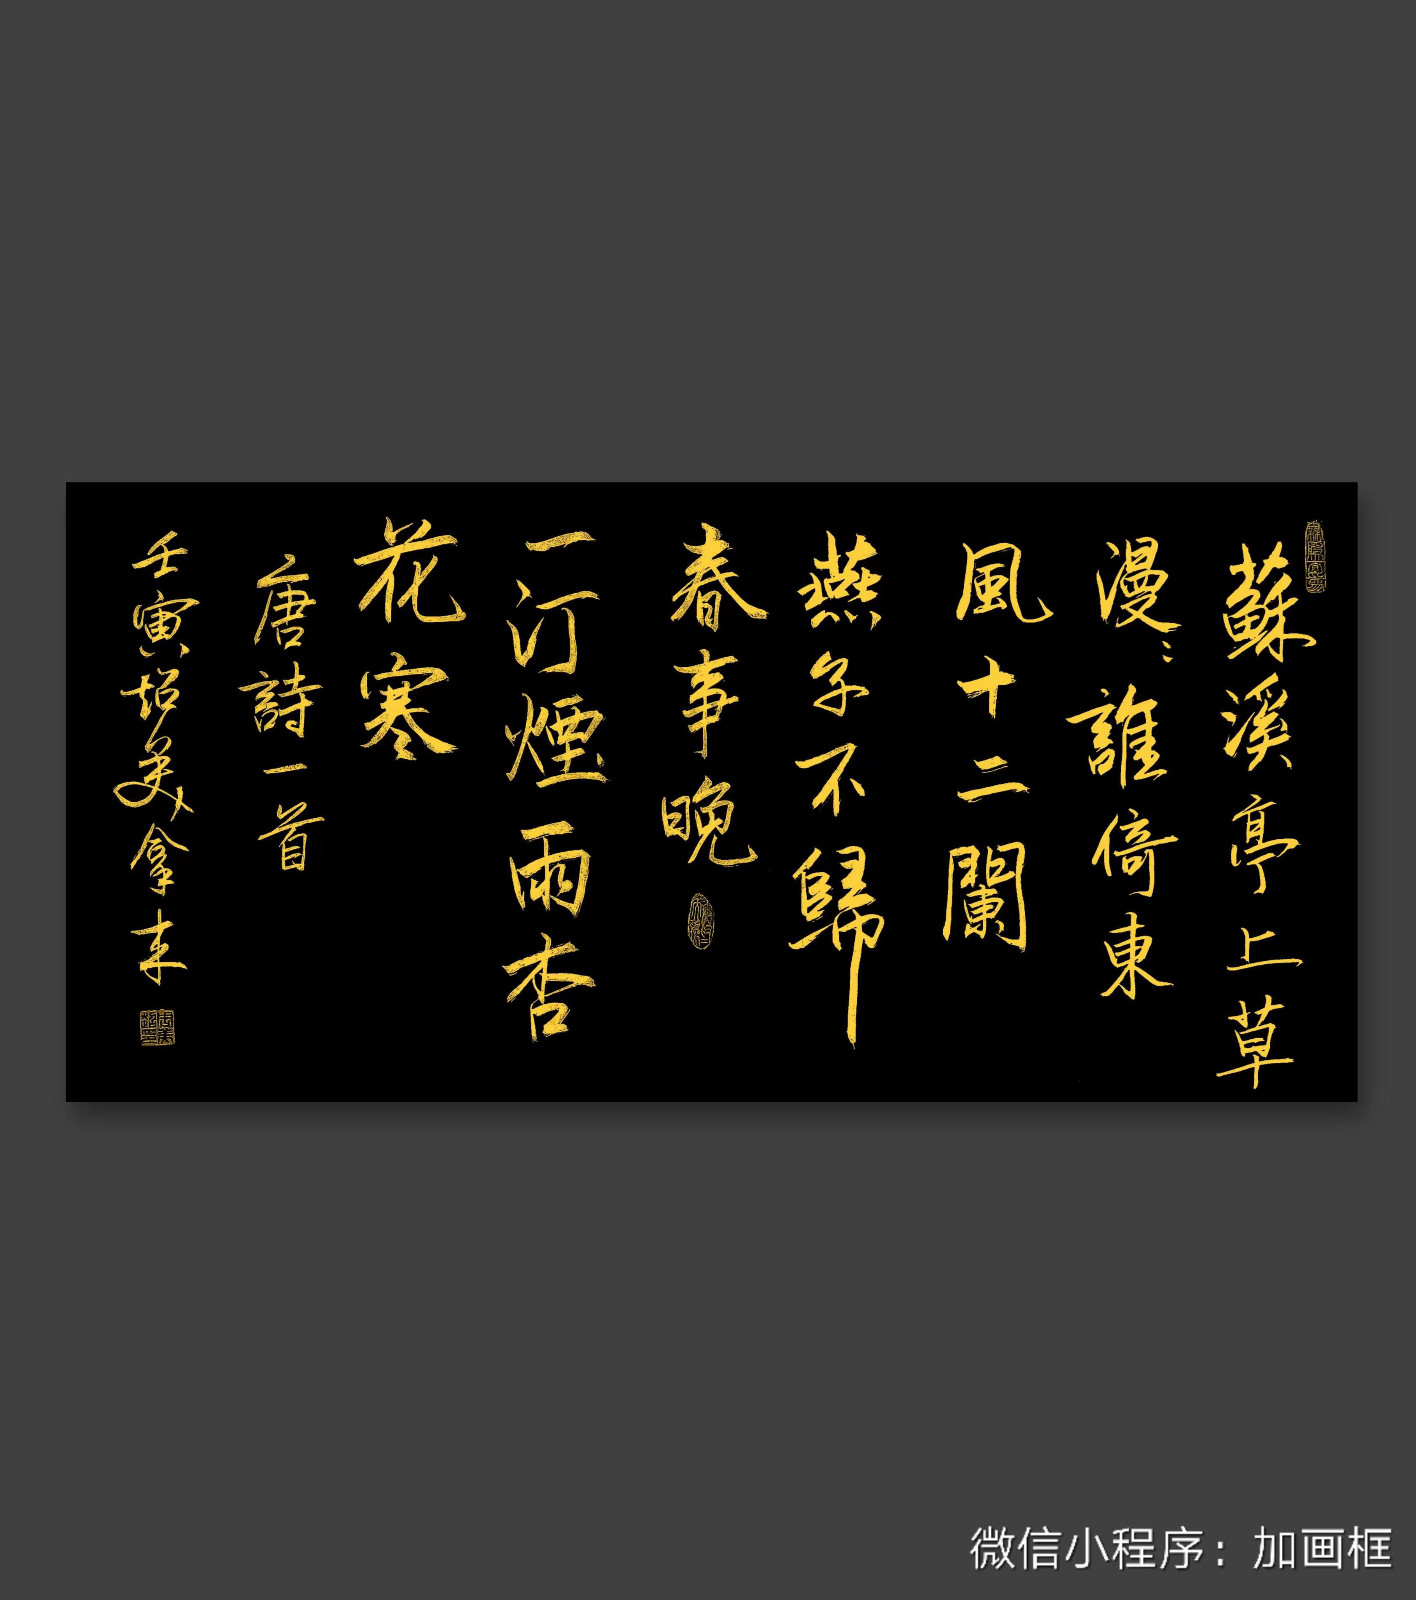 蘇溪亭上草
漫〻誰倚東
風十二闌
燕子不歸
春事晚
一汀煙雨杏
花寒
唐詩一首
壬寅
微信小程序：加画框